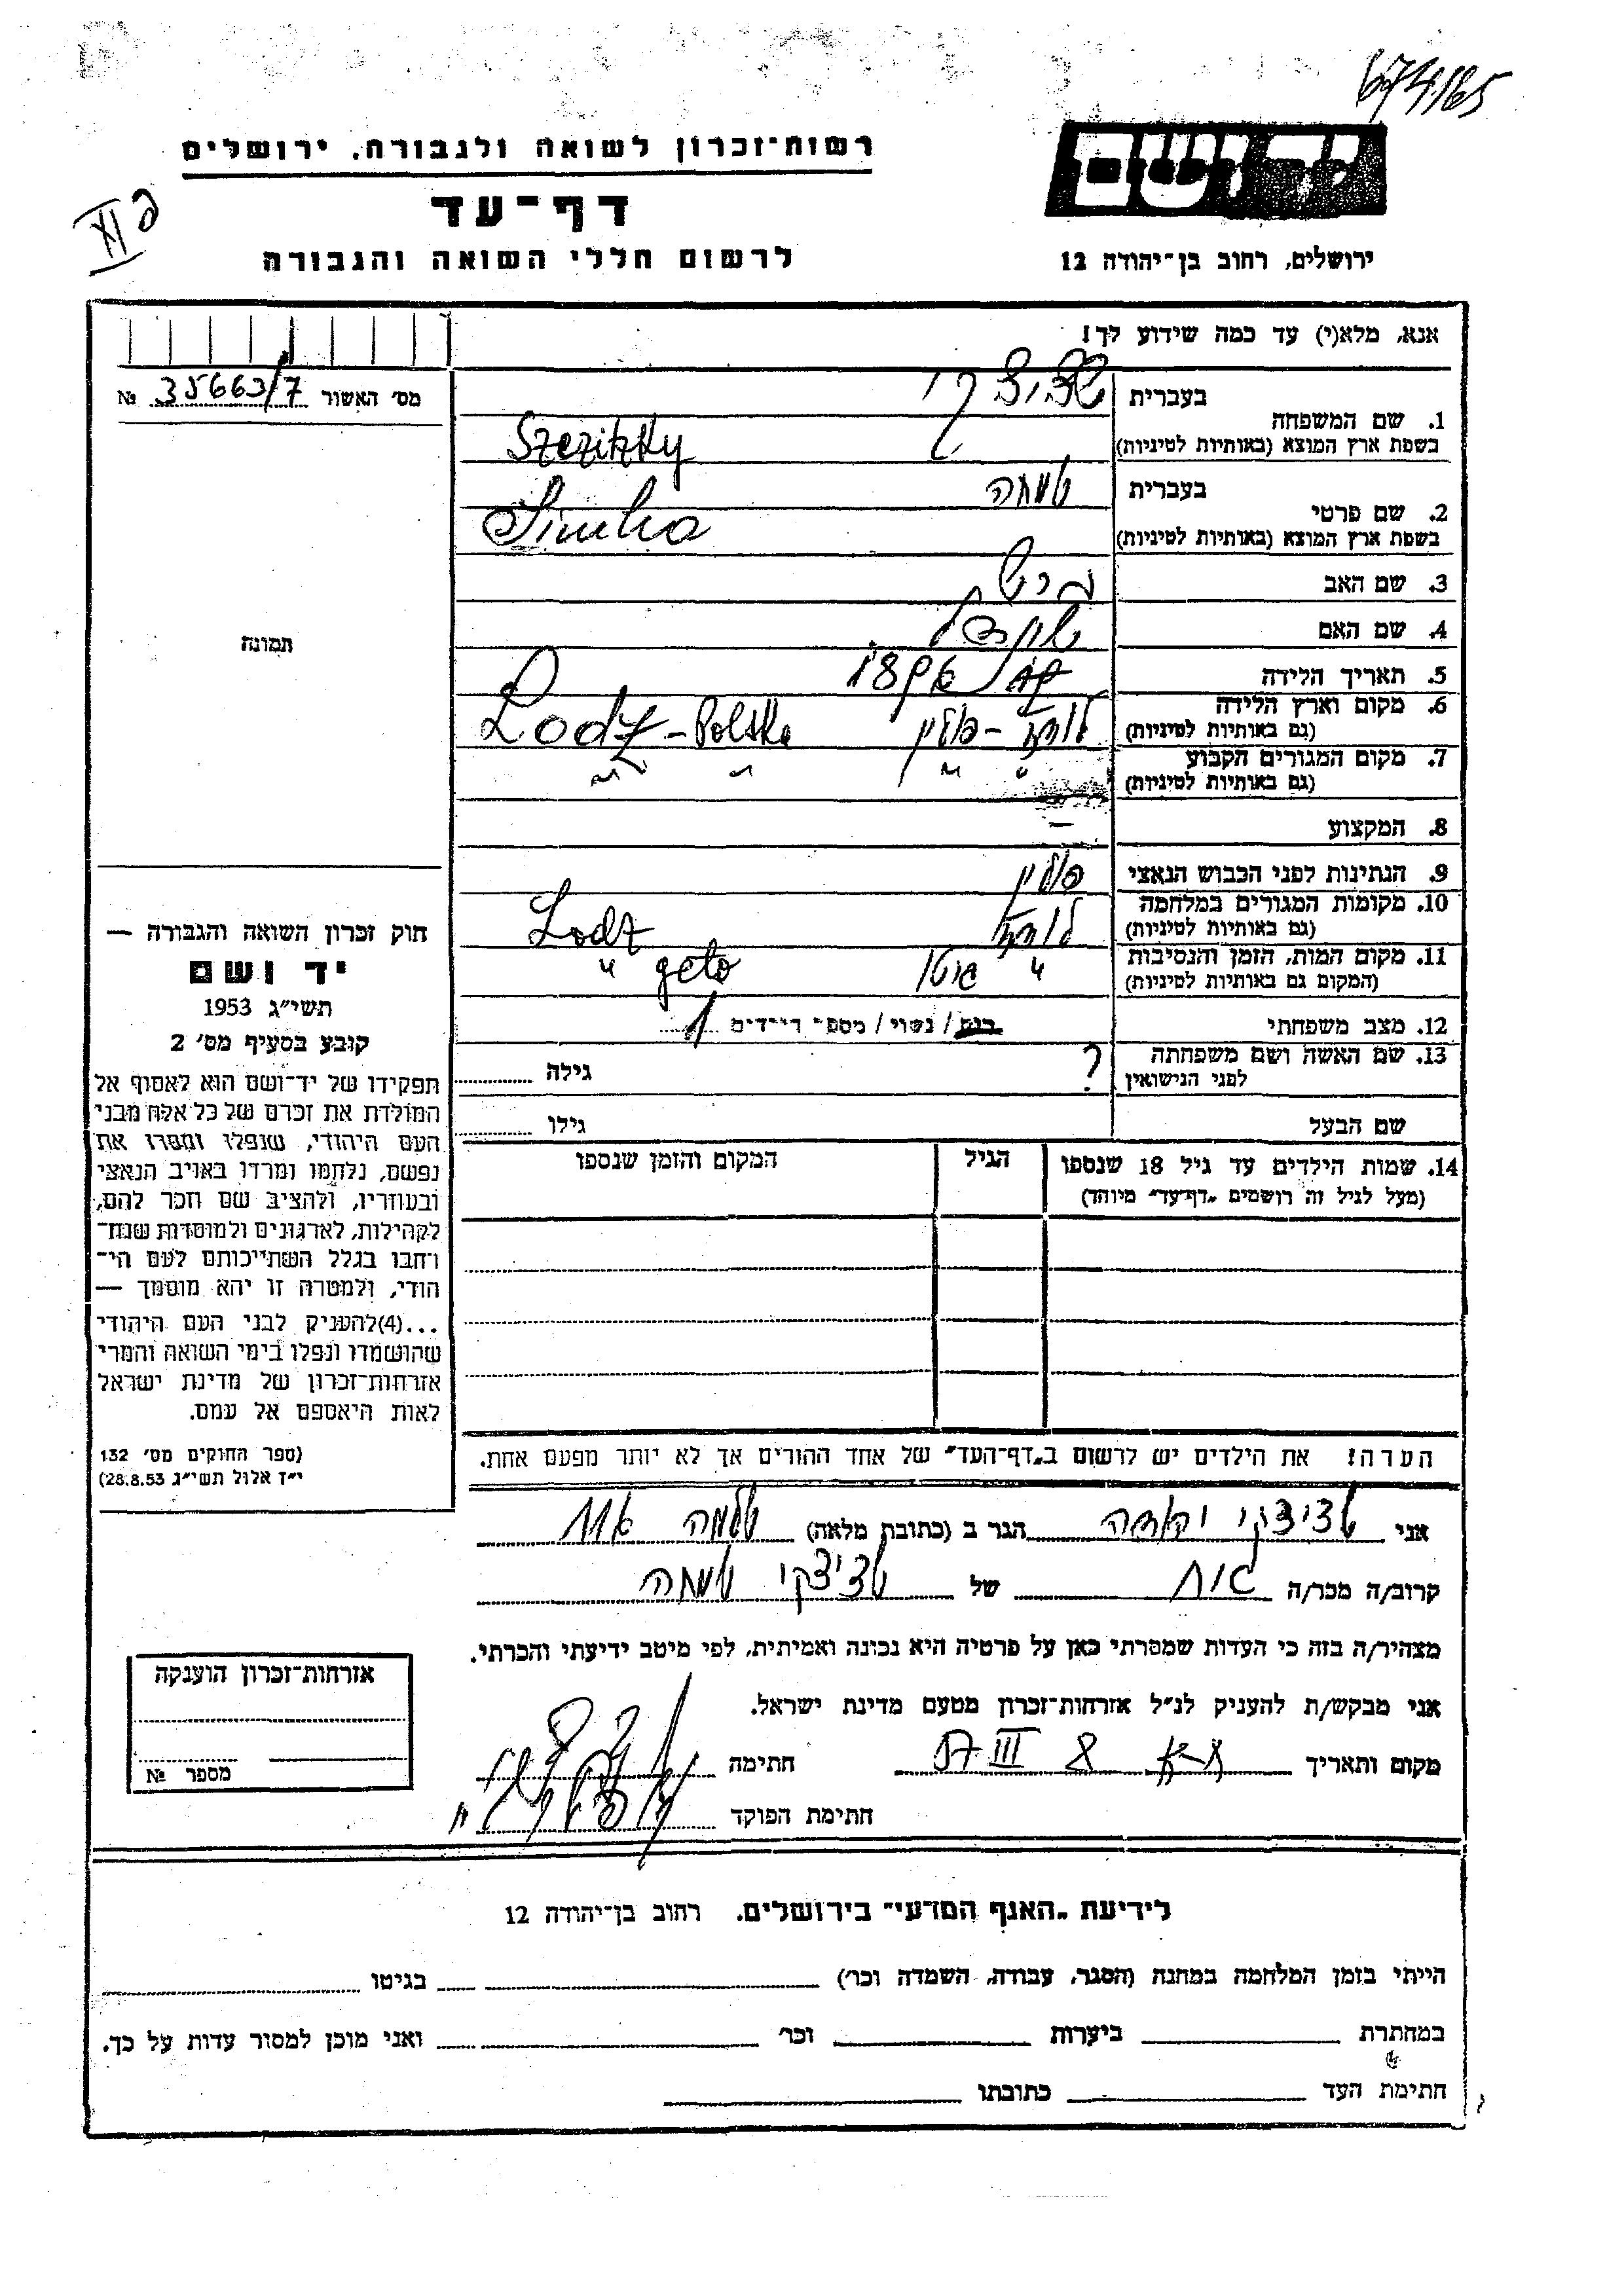 674165
רשות־זכרון לשואה ולגבורה, ירושלים
יד ושם
דף־עד
XI
לרשום חללי השואה והגבורה
ירושלים, רחוב בן־יהודה 12
אנא, מלא(י) עד כמה שידוע לך!
מס׳ האשור № 35663/7
1. שם המשפחה
בעברית
בשפת ארץ המוצא (באותיות לטיניות) Szezitzky
2. שם פרטי
בעברית שמחה
בשפת ארץ המוצא (באותיות לטיניות) Simha
3. שם האב
4. שם האם
5. תאריך הלידה
6. מקום וארץ הלידה
(גם באותיות לטיניות) לודז׳ - פולין Lodz - Polska
7. מקום המגורים הקבוע " " " "
(גם באותיות לטיניות)
8. המקצוע —
9. הנתינות לפני הכבוש הנאצי פולין
10. מקומות המגורים במלחמה
(גם באותיות לטיניות) לודז׳ Lodz
11. מקום המות, הזמן והנסיבות " גיטו " geto
(המקום גם באותיות לטיניות)
12. מצב משפחתי רווק / נשוי / מספר הילדים 1
13. שם האשה ושם משפחתה ? גילה
לפני הנישואין
שם הבעל גילו
14. שמות הילדים עד גיל 18 שנספו הגיל המקום והזמן שנספו
(מעל לגיל זה רושמים „דף־עד״ מיוחד)
תמונה
חוק זכרון השואה והגבורה —
יד ושם
תשי״ג 1953
קובע בסעיף מס׳ 2
תפקידו של יד־ושם הוא לאסוף אל
המולדת את זכרם של כל אלה מבני
העם היהודי, שנפלו ומסרו את
נפשם, נלחמו ומרדו באויב הנאצי
ובעוזריו, ולהציב שם וזכר להם,
לקהילות, לארגונים ולמוסדות שנח־
רחבו בגלל השתייכותם לעם הי־
הודי, ולמטרה זו יהא מוסמך —
...(4)להעניק לבני העם היהודי
שהושמדו ונפלו בימי השואה והמרי
אזרחות־זכרון של מדינת ישראל
לאות היאספם אל עמם.
(ספר החוקים מס׳ 132
י״ז אלול תשי״ג 28.8.53)
הערה! את הילדים יש לרשום ב„דף־העד״ של אחד ההורים אך לא יותר מפעם אחת.
אני שציצקי הגר ב (כתובת מלאה)
קרוב/ה מכר/ה של שציצקי שמחה
מצהיר/ה בזה כי העדות שמסרתי כאן על פרטיה היא נכונה ואמיתית, לפי מיטב ידיעתי והכרתי.
אני מבקש/ת להעניק לנ״ל אזרחות־זכרון מטעם מדינת ישראל.
מקום ותאריך 8 III 57 חתימה
חתימת הפוקד
אזרחות־זכרון הוענקה
מספר №
לידיעת „האגף המדעי״ בירושלים, רחוב בן־יהודה 12
הייתי בזמן המלחמה במחנה (הסגר, עבודה, השמדה וכו׳) בגיטו
במחתרת ביערות וכו׳ ואני מוכן למסור עדות על כך.
חתימת העד כתובתו